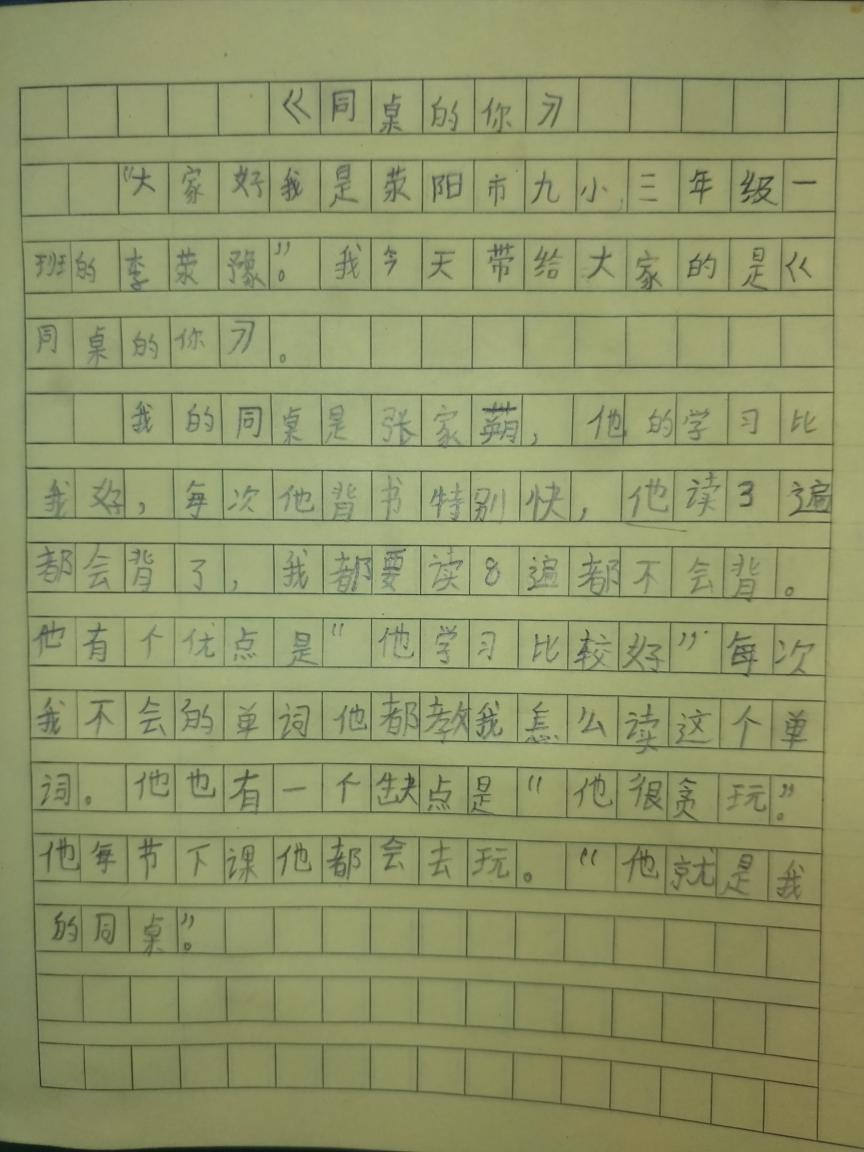 《同桌的你》
“大家好我是荥阳市九小三年级一
班的李荥豫”。我今天带给大家的是《
同桌的你》。
我的同桌是张家,他的学习比
我好,每次他背书特别快,他读3遍
都会背了,我都要读8遍都不会背。
他有个优点是“他学习比较好”每次
我不会的单词他都教我怎么读这个单
词。他也有一个缺点是“他很贪玩”。
他每节下课他都会去玩。“他就是我
的同桌”。